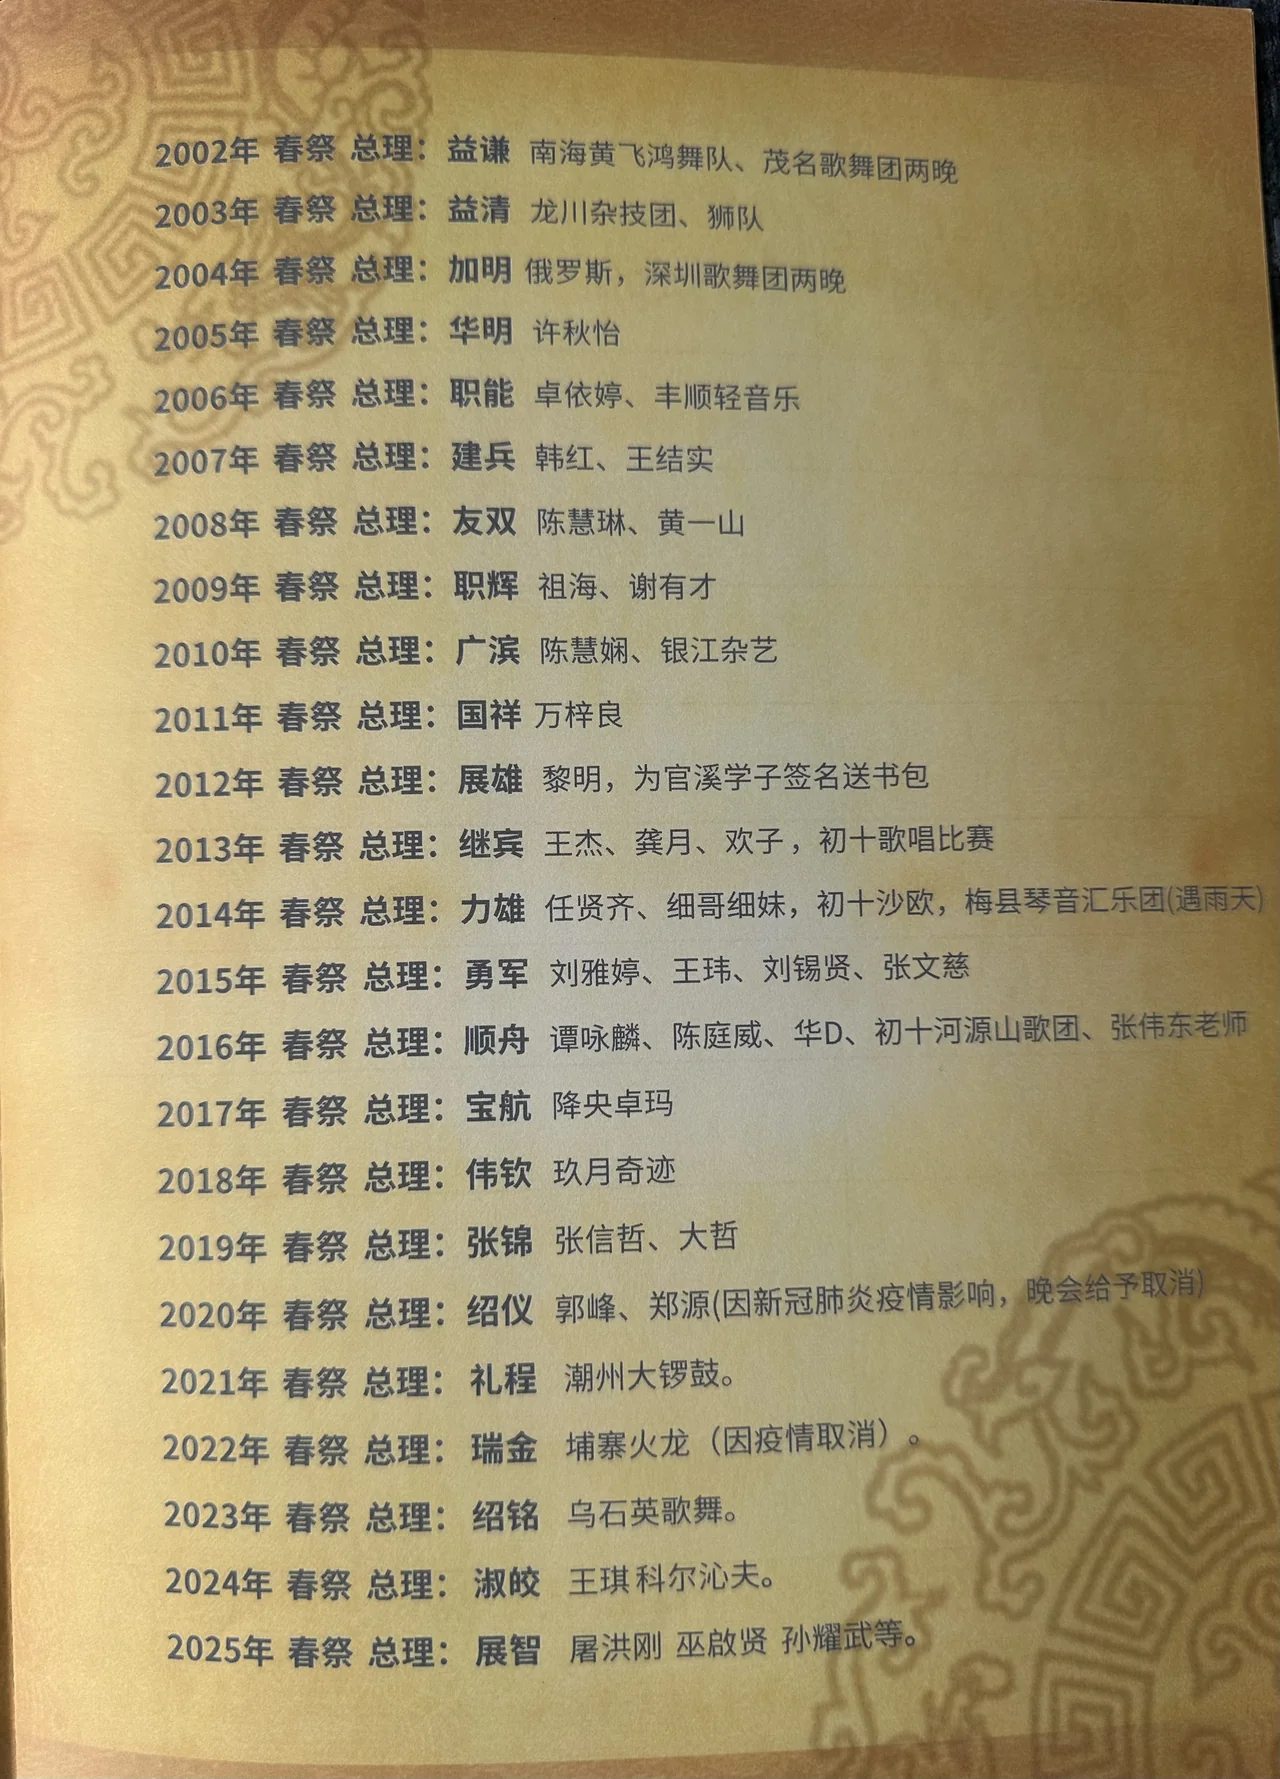 2002年 春祭 总理：益谦 南海黄飞鸿舞队、茂名歌舞团两晚
2003年 春祭 总理：益清 龙川杂技团、狮队
2004年 春祭 总理：加明 俄罗斯，深圳歌舞团两晚
2005年 春祭 总理：华明 许秋怡
2006年 春祭 总理：职能 卓依婷、丰顺轻音乐
2007年 春祭 总理：建兵 韩红、王结实
2008年 春祭 总理：友双 陈慧琳、黄一山
2009年 春祭 总理：职辉 祖海、谢有才
2010年 春祭 总理：广滨 陈慧娴、银江杂艺
2011年 春祭 总理：国祥 万梓良
2012年 春祭 总理：展雄 黎明，为官溪学子签名送书包
2013年 春祭 总理：继宾 王杰、龚月、欢子，初十歌唱比赛
2014年 春祭 总理：力雄 任贤齐、细哥细妹，初十沙欧，梅县琴音汇乐团(遇雨天)
2015年 春祭 总理：勇军 刘雅婷、王玮、刘锡贤、张文慈
2016年 春祭 总理：顺舟 谭咏麟、陈庭威、华D、初十河源山歌团、张伟东老师
2017年 春祭 总理：宝航 降央卓玛
2018年 春祭 总理：伟钦 玖月奇迹
2019年 春祭 总理：张锦 张信哲、大哲
2020年 春祭 总理：绍仪 郭峰、郑源(因新冠肺炎疫情影响，晚会给予取消)
2021年 春祭 总理：礼程 潮州大锣鼓。
2022年 春祭 总理：瑞金 埔寨火龙（因疫情取消）。
2023年 春祭 总理：绍铭 乌石英歌舞。
2024年 春祭 总理：淑皎 王琪 科尔沁夫。
2025年 春祭 总理：展智 屠洪刚 巫啟贤 孙耀武等。